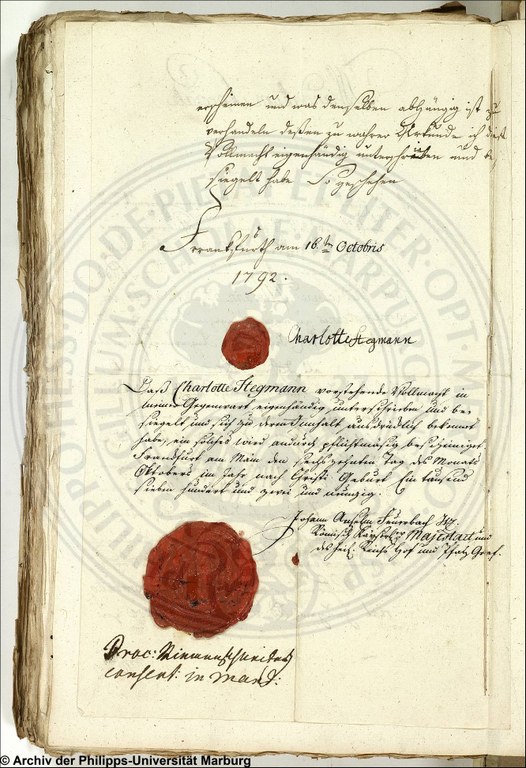 erscheinen und was denselben abhängig ist zu
verhandeln dessen zu wahrer Urkunde ich diese
Vollmacht eigenhändig unterschrieben und be
siegelt habe So geschehen
Franckfurth am 16.ten Octobris
1792.
Charlotte Stegmann
Daß Charlotte Stegmann vorstehende Vollmacht in
meiner Gegenwart eigenhändig unterschrieben und be-
siegelt und sich zu deren Innhalt ausdrücklich bekennet
habe, ein solches wird andurch pflichtmäsig bescheiniget.
Franckfurt am Main den Sechszehnten Tag des Monats
Oktobers im Jahr nach Christi Geburt Ein tausend
sieben hundert und zwei und neunzig.
Johann Anselm Feuerbach
Römisch Kayserl. Majestaet und
des heil. Reichs Hof und Pfalz Graf.
Proc:
consent: in mand:
© Archiv der Philipps-Universität Marburg